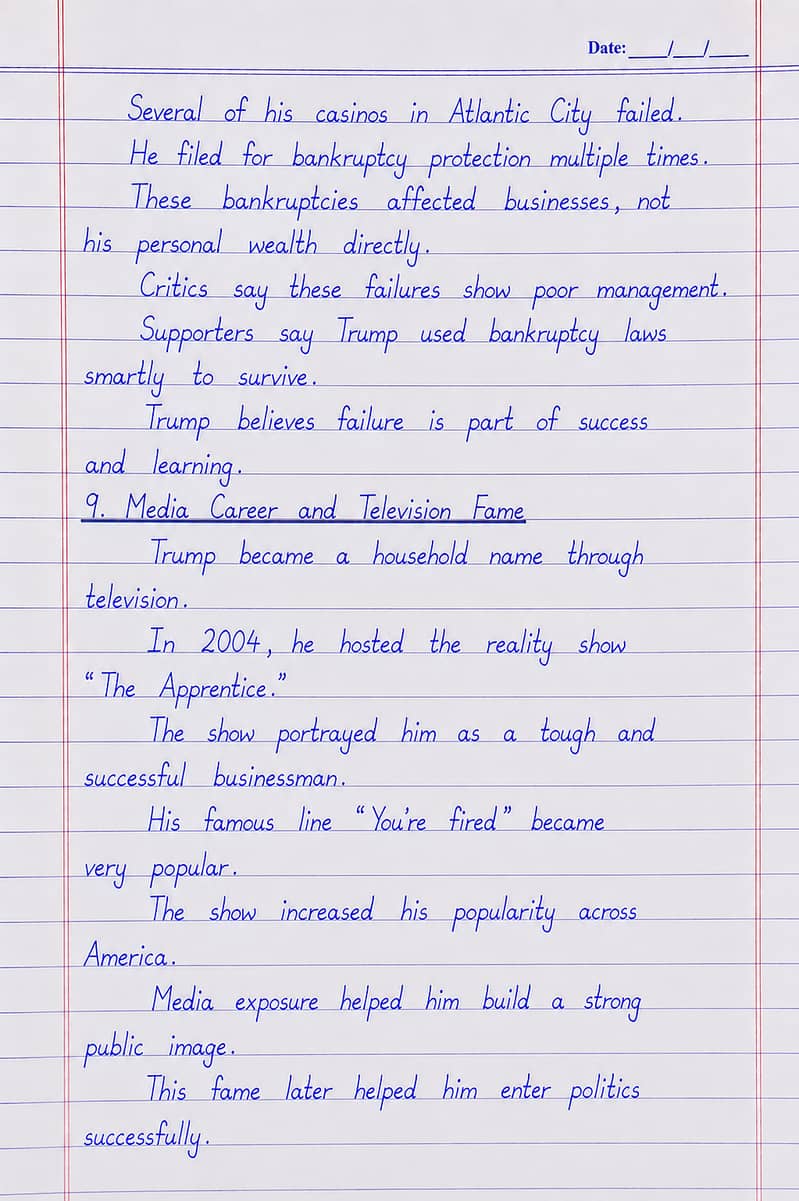 Date: ____/___/____
Several of his casinos in Atlantic City failed.
He filed for bankruptcy protection multiple times.
These bankruptcies affected businesses, not
his personal wealth directly.
Critics say these failures show poor management.
Supporters say Trump used bankruptcy laws
smartly to survive.
Trump believes failure is part of success
and learning.
9. Media Career and Television Fame
Trump became a household name through
television.
In 2004, he hosted the reality show
“The Apprentice.”
The show portrayed him as a tough and
successful businessman.
His famous line “You’re fired” became
very popular.
The show increased his popularity across
America.
Media exposure helped him build a strong
public image.
This fame later helped him enter politics
successfully.